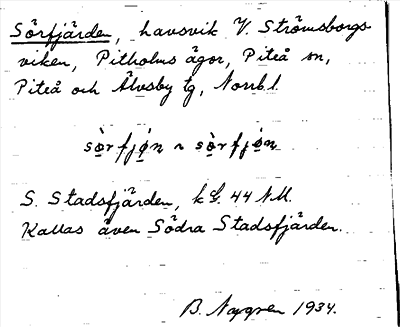 Sörfjärden, havsvik V. Strömsborgs-
viken, Pitholms ägor, Piteå sn,
Piteå och Älvsby tg, Norrb. l.
sö̀rfjọ́n ~ sö̀rfjọ́n
S. Stadsfjärden, kbl. 44 N.M.
Kallas även Södra Stadsfjärden.
B. Nygren 1934.